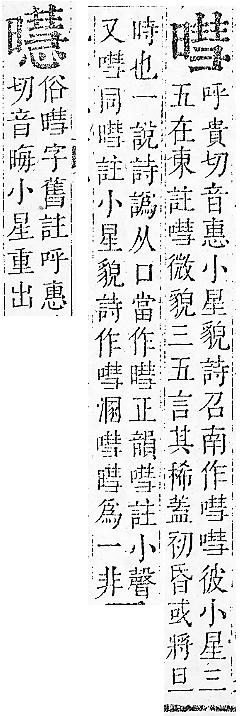 暳
呼貴切音惠小星貌詩召南作嘒嘒彼小星三
五在東註嘒微貌三五言其稀蓋初昏或將旦
時也一說詩譌从口當作暳正韻嘒註小聲
又嘒同暳註小星貌詩作嘒溷嘒暳爲一非
俗暳字舊註呼惠
切音晦小星重出